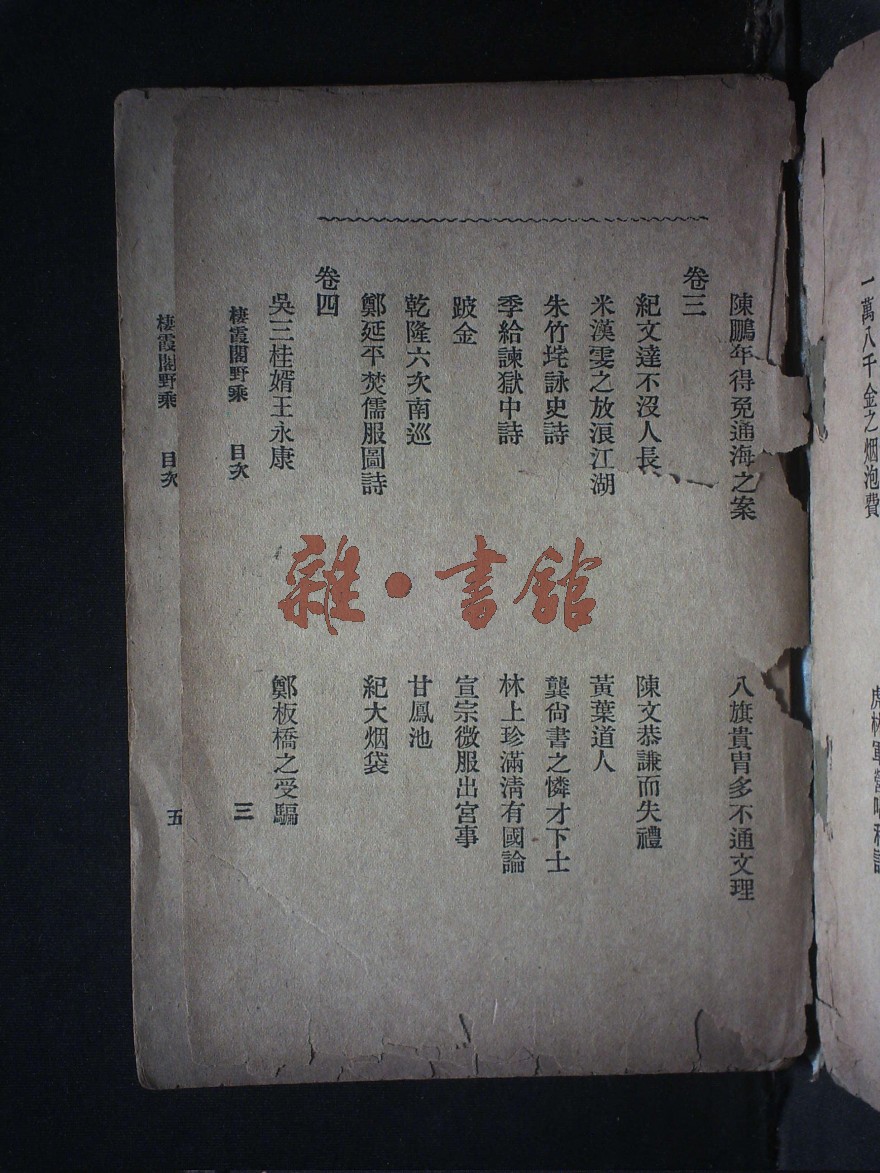 一萬八千金之烟泡費
陳鵬年得免通海之案
八旗貴胄多不通文理
卷三
紀文達不沒人長
陳文恭謙而失禮
米漢雯之放浪江湖
黃葉道人
朱竹垞詠史詩
龔尙書之憐才下士
季給諫獄中詩
林上珍滿淸有國論
跛金
宣宗微服出宮事
乾隆六次南巡
甘鳳池
鄭延平焚儒服圖詩
紀大烟袋
卷四
吳三桂婿王永康
鄭板橋之受騙
棲霞閣野乘 目次 三
棲霞閣野乘 目次 五
雜·書館